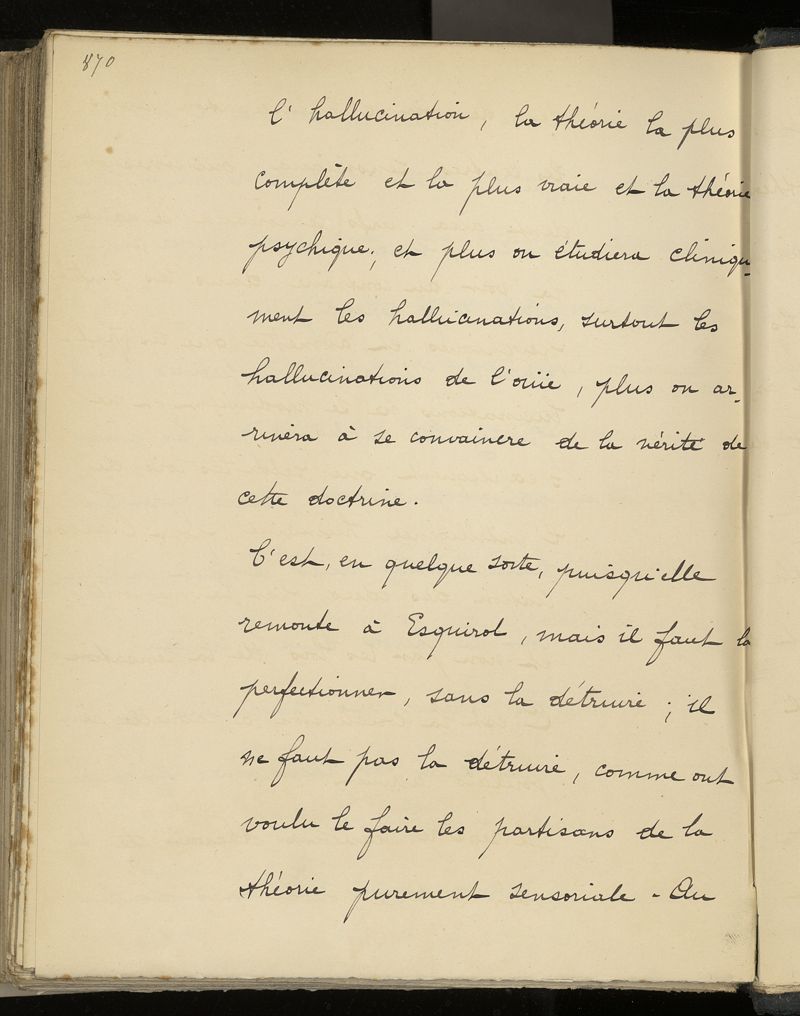 870
l'hallucination, la théorie la plus
complète et la plus vraie et la théorie
psychique; et plus on étudiera cliniqu-
ment les hallucinations, surtout les
hallucinations de l'ouïe, plus on ar-
rivera à se convaincre de la vérité de
cette doctrine.
C'est, en quelque sorte, puisqu'elle
remonte à Esquirol, mais il faut la
perfectionner, sans la détruire; il
ne faut pas la détruire, comme ont
voulu le faire les partisans de la
théorie purement sensoriale - Au